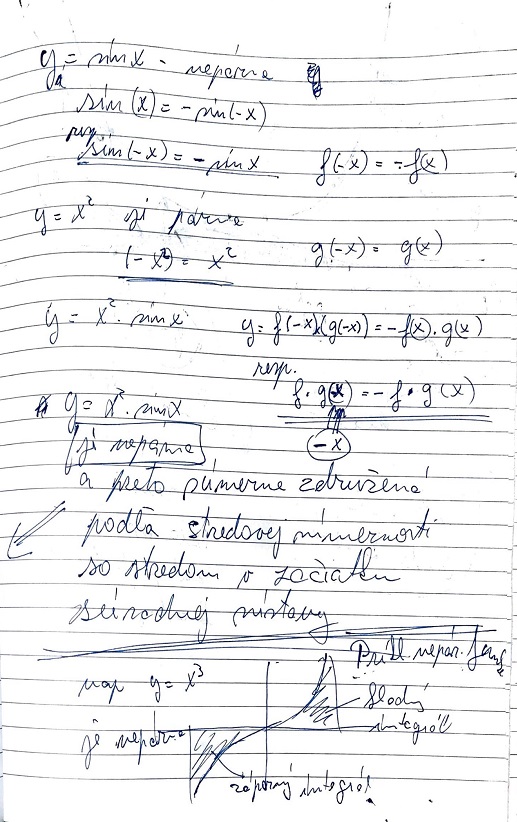 y = sin x - nepárna
sin(x) = -sin(-x)
resp.
sin(-x) = -sin x f(-x) = -f(x)
y = x² je párna
(-x²) = x² g(-x) = g(x)
y = x² · sin x y = f(-x)·(g(-x)) = -f(x)·g(x)
resp.
f·g(x) = -f·g(x)
y = x² · sin x
je nepárna -x
a preto súmerne združená
podľa stredovej súmernosti
so stredom v začiatku
súradnej sústavy
Príkl. nepár. funk
nap y = x³
je nepárna
kladný
integrál
záporný integrál